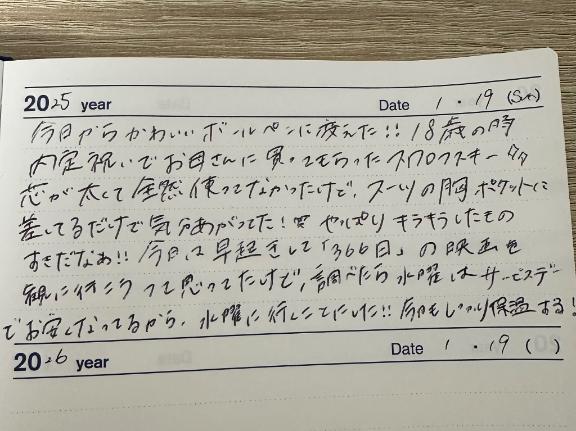 2025 year Date 1・19 (Sun)
今日からかわいいボールペンに変えた!! 18歳の時
内定祝いでお母さんに買ってもらったスワロフスキー
芯が太くて全然使ってなかったけど、スーツの胸ポケットに
差してるだけで気分あがってた! やっぱりキラキラしたもの
すきだなぁ!! 今日は早起きして「366日」の映画を
観に行こうって思ってたけど、調べたら水曜はサービスデー
でお安くなってるから、水曜に行くことにした!! 今日もしっかり保温する!
2026 year Date 1・19 ( )